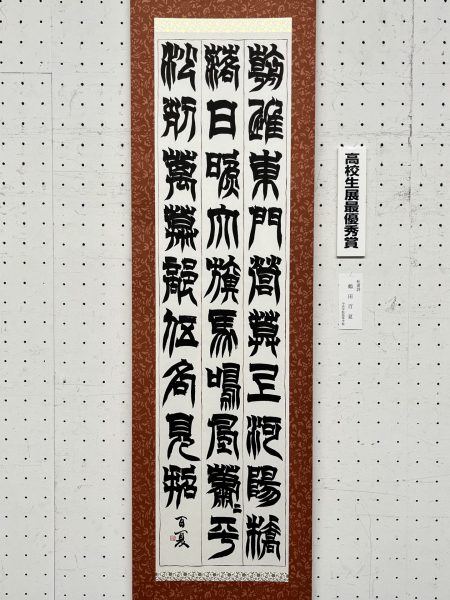 朝進東門營暮上河陽橋
落日照大旗馬鳴風蕭々平
沙列萬幕部伍各見招
百夏
高校生展最優秀賞